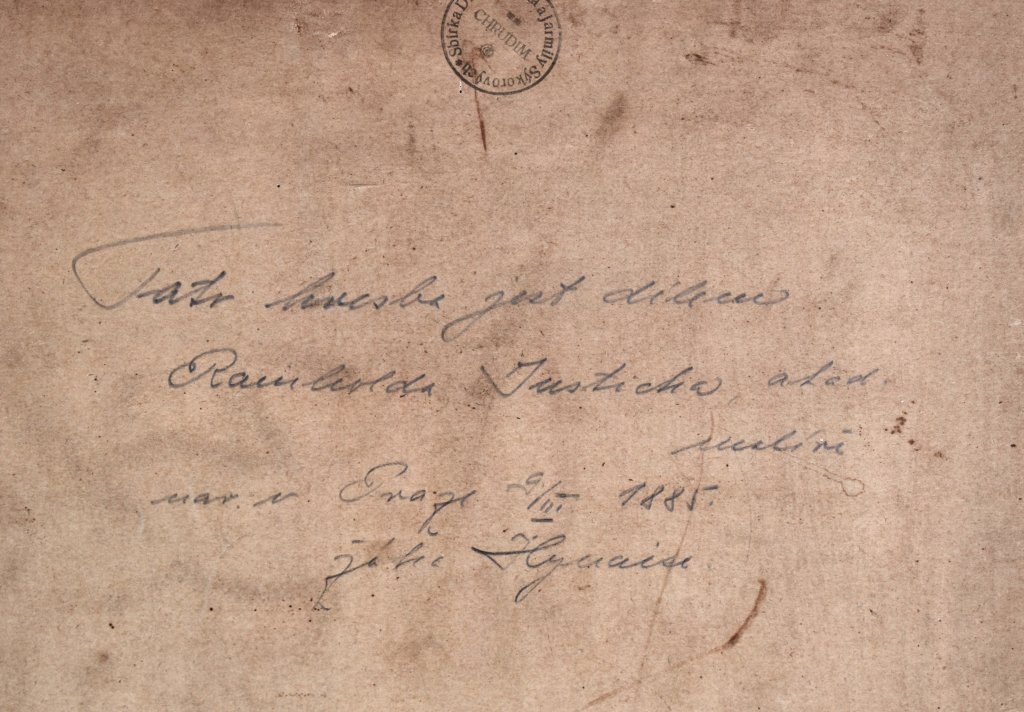 Sbírka D a Jarmily Sýkorových
CHRUDIM
Tato kresba jest dílem
Reinholda Justicha, akad.
malíře
nar. v Praze 9/III. 1885.
žáka Hynaise.